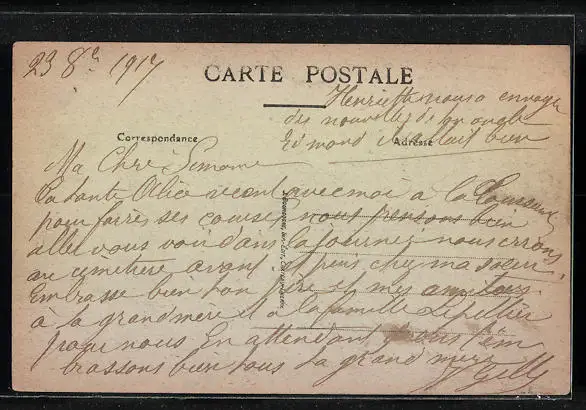 23 8e 1917
CARTE POSTALE
Henriette nous a envoyer
des nouvelles de son oncle
Edmond il allait bien
Correspondance
Adresse
Ma Chère Simone
Ta tante Alice vient avec moi à la
pour faires ses courses nous pensons bien
aller vous voir dans la journez nous errons
au cimetiere avant puis chez ma sœur.
Embrasse bien ton père et mes amities
à la grand mère et a la famille Lepeltier
pour nous En attendant je vous em
brassons bien tous La grand mère